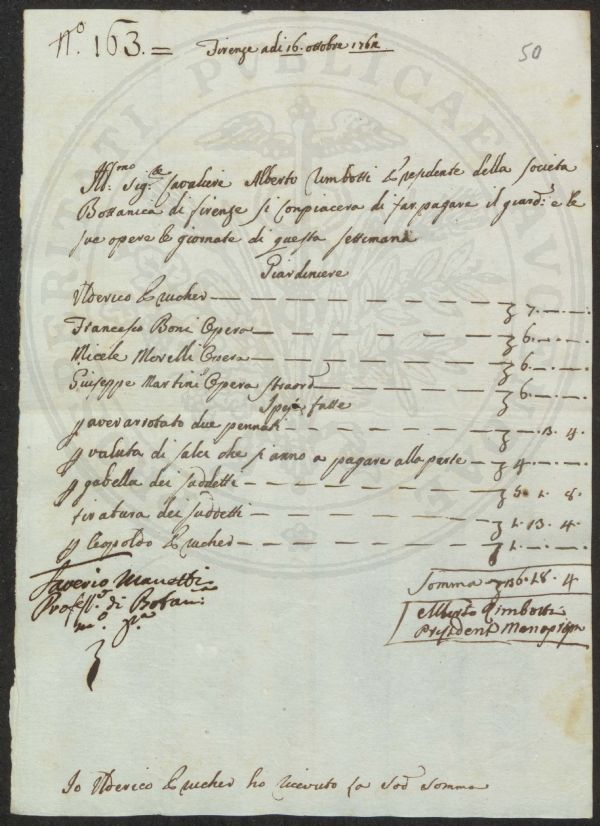 N.º 163. =
Firenze adi 16. ottobre 1762
50
Ill:mo Sig:re Cavaliere Alberto Rimbotti Presidente della Società
Bottanica di firenze si conpiacera di far pagare il giard:e e le
sue opere le giornate di questa settimana
Giardiniere
Ulderico Prucher — — — — — — — — 7. — . —
Francesco Boni Opera — — — — — — 6. — . —
Micele Morelli Opera — — — — — — 6. — . —
Giuseppe Martini Opera straord — — — — 6. — . —
Spese fatte
p aver arrotato due pennati — — — — — . 13. 4.
p valuta di salci che si anno a pagare alla parte — 4. — . —
p gabella dei suddetti — — — — — — 5. 1. 8.
tiratura dei suddetti — — — — — — 1. 13. 4
p Leopoldo Prucher — — — — — — 1. — . —
Somma 18. 4
Saverio Manetti
Profess.r di Botan:
m.º p.a
Alberto Rimbotti
President
Io Ulderico Prucher ho ricevuto la sod somma